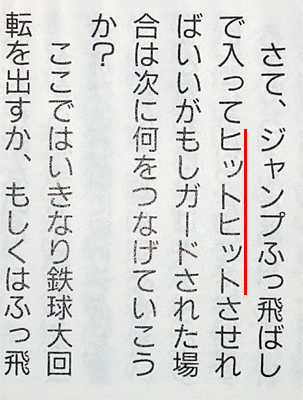 さて、ジャンプふっ飛ばし
で入ってヒットヒットさせれ
ばいいがもしガードされた場
合は次に何をつなげていこう
か?
ここではいきなり鉄球大回
転を出すか、もしくはふっ飛